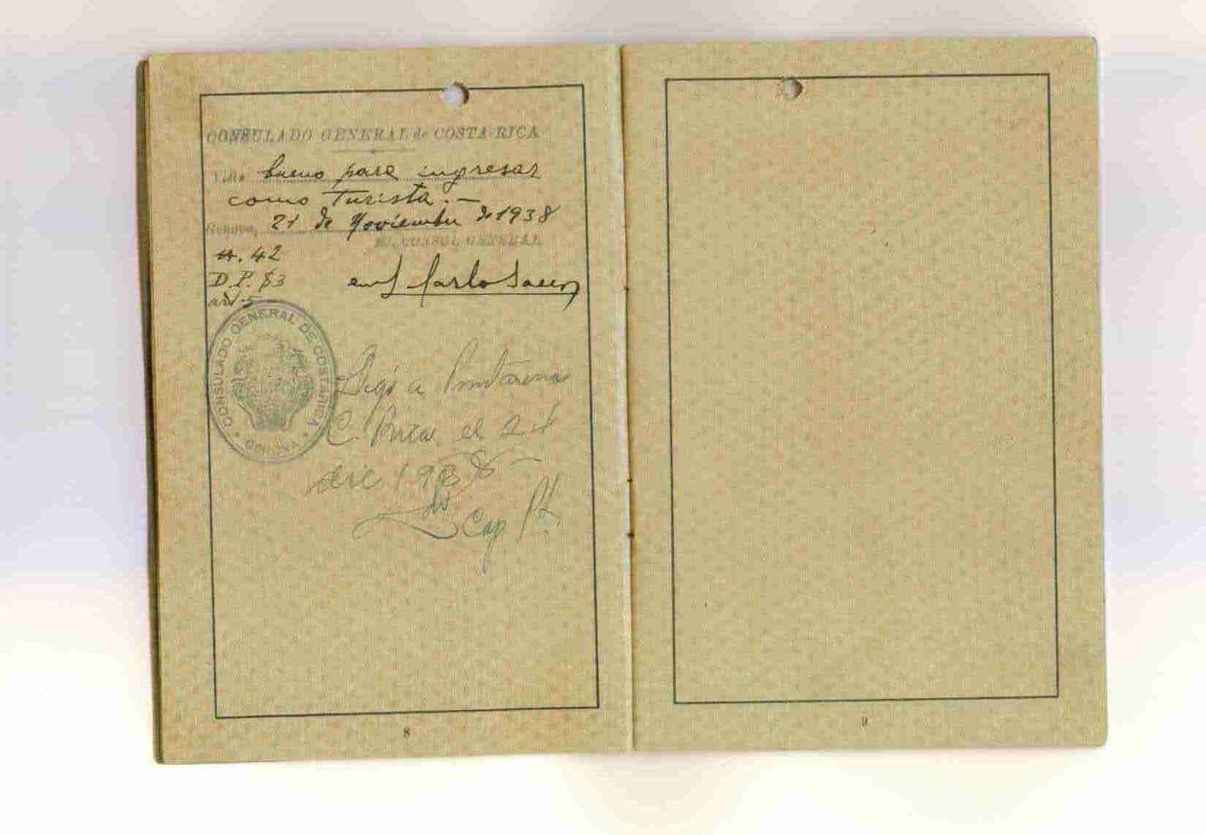 CONSULADO GENERAL de COSTA-RICA
Visto bueno para ingresar
como Turista.-
Genova, 21 de Noviembre de 1938
EL CONSUL GENERAL
#. 42
D.P. $3
CONSULADO GENERAL DE COSTA RICA
GENOVA
a Puntarenas
C. Rica el 21
dic 1938
Cap Pt.
8
9